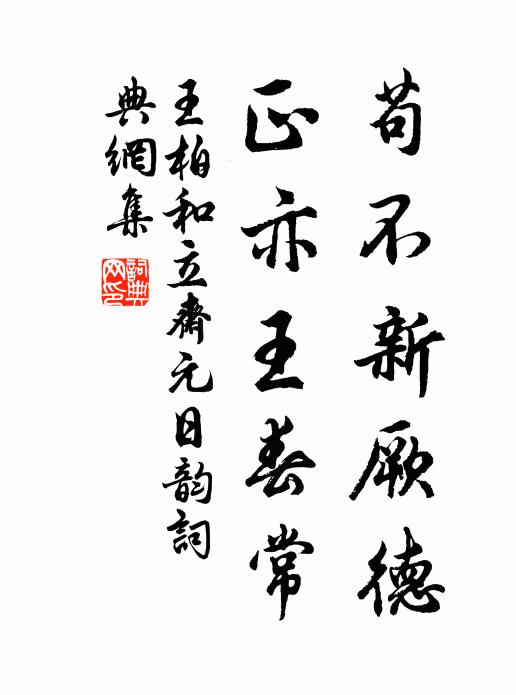 苟不新厥德
正亦王春常
王柏和立齋元日韵詞
典網集
詞典
网印